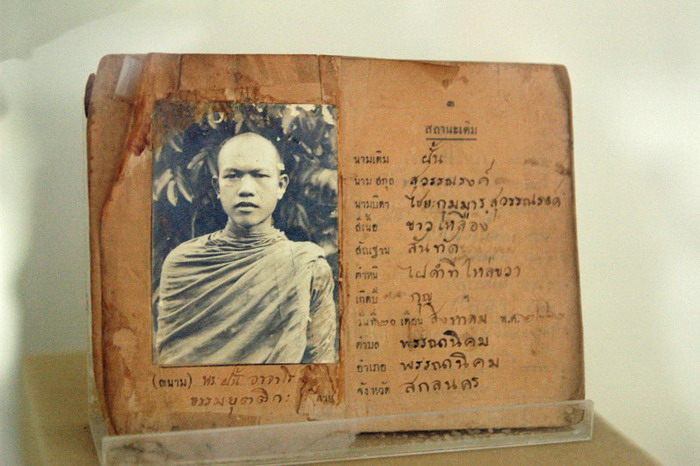 ๓
สถานะเดิม
นามเดิม ฝั้น
นามสกุล สุวรรณรงค์
นามบิดา ไชยะกุมมาร สุวรรณรงค์
สีเนื้อ ขาวเหลือง
สัณฐาน สันทัด
ตำหนิ ไฝดำที่ไหล่ขวา
เกิดปี กุญ
วันที่ ๒๐ เดือน สิงหาคม พ.ศ.
ตำบล พรรณานิคม
อำเภอ พรรณานิคม
จังหวัด สกลนคร
(ฉนาม) พระ ฝั้น อาจาโร
ธรรมยุตติกะ